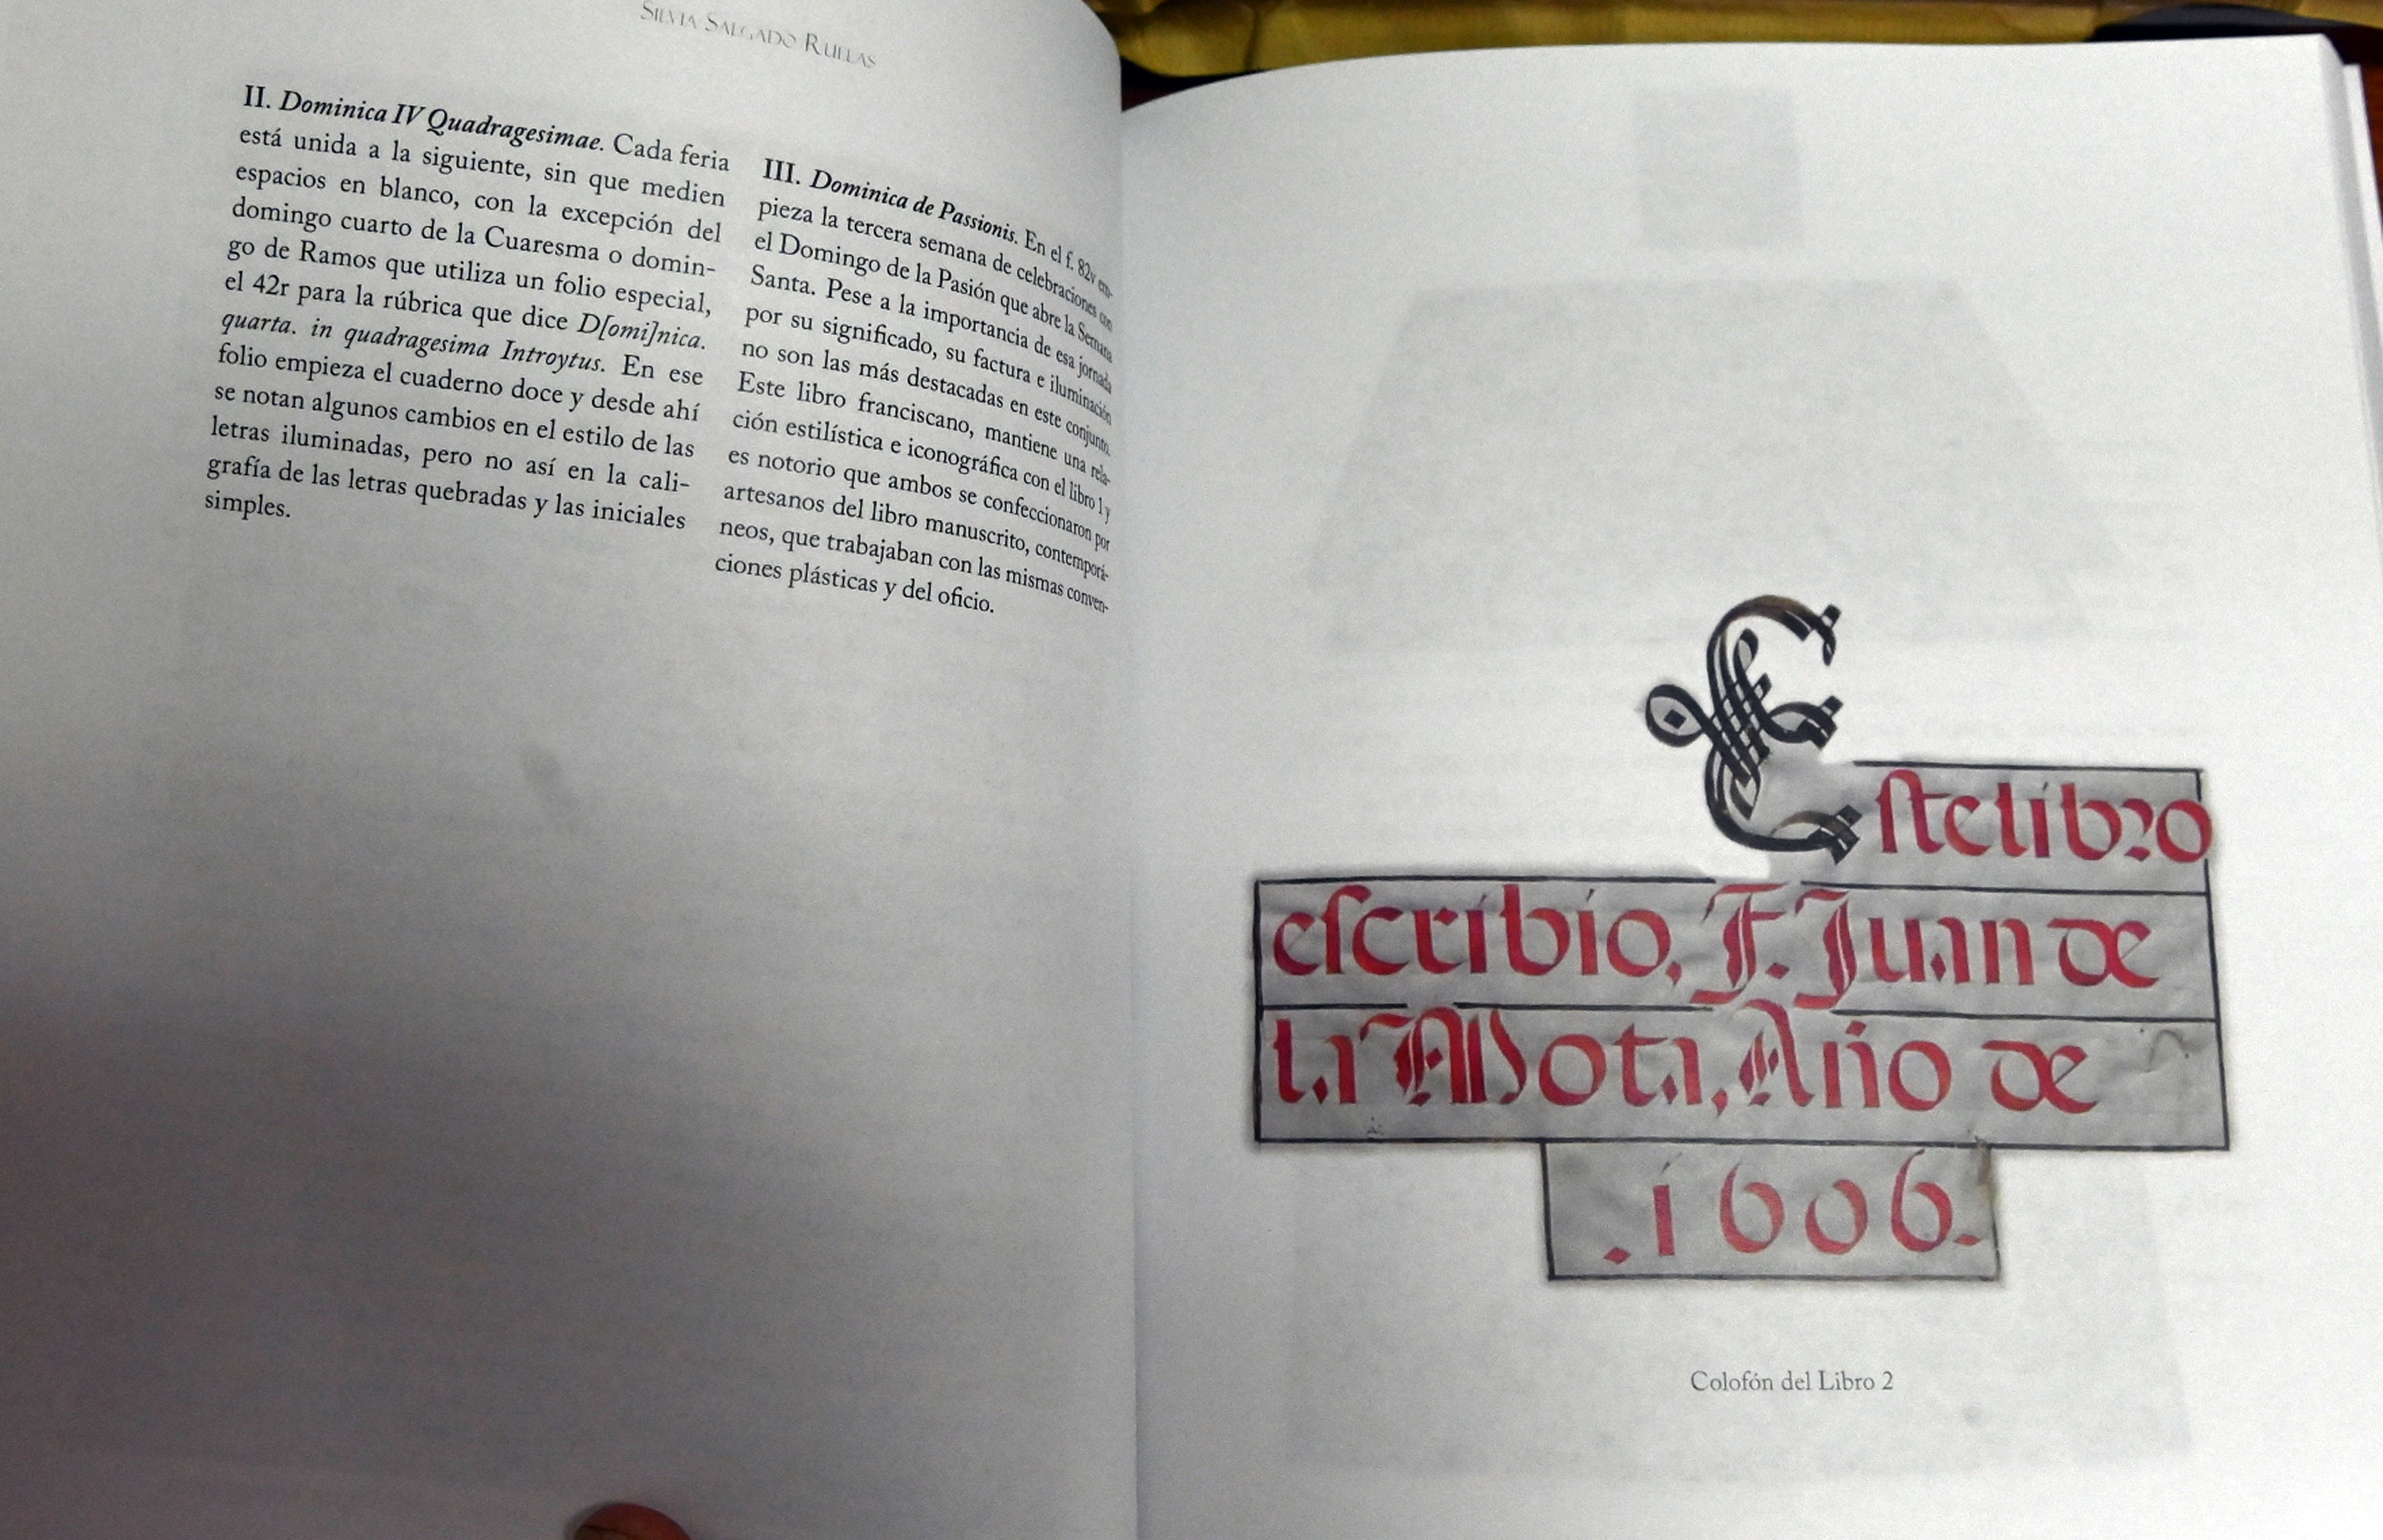 SILVIA SALGADO RUELAS
II. Dominica IV Quadragesimae. Cada feria
está unida a la siguiente, sin que medien
espacios en blanco, con la excepción del
domingo cuarto de la Cuaresma o domin-
go de Ramos que utiliza un folio especial,
el 42r para la rúbrica que dice D[omi]nica.
quarta. in quadragesima Introytus. En ese
folio empieza el cuaderno doce y desde ahí
se notan algunos cambios en el estilo de las
letras iluminadas, pero no así en la cali-
grafía de las letras quebradas y las iniciales
simples.
III. Dominica de Passionis. En el f. 82v em-
pieza la tercera semana de celebraciones con
el Domingo de la Pasión que abre la Semana
Santa. Pese a la importancia de esa jornada
por su significado, su factura e iluminación
no son las más destacadas en este conjunto.
Este libro franciscano, mantiene una rela-
ción estilística e iconográfica con el libro 1 y
es notorio que ambos se confeccionaron por
artesanos del libro manuscrito, contemporá-
neos, que trabajaban con las mismas conven-
ciones plásticas y del oficio.
Este libro
escribio, F. Juan de
la Mota, Año de
.1606.
Colofón del Libro 2